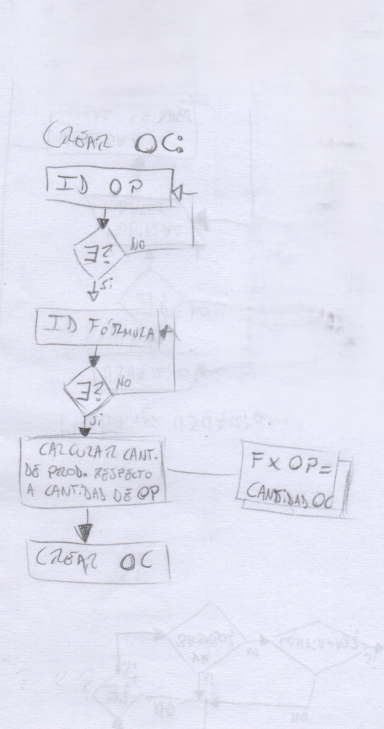 CREAR OC:
ID OP
E?
NO
Si
ID FÓRMULA
E?
NO
Si
CALCULAR CANT.
DE PROD. RESPECTO
A CANTIDAD DE OP
F X OP =
CANTIDAD OC
CREAR OC